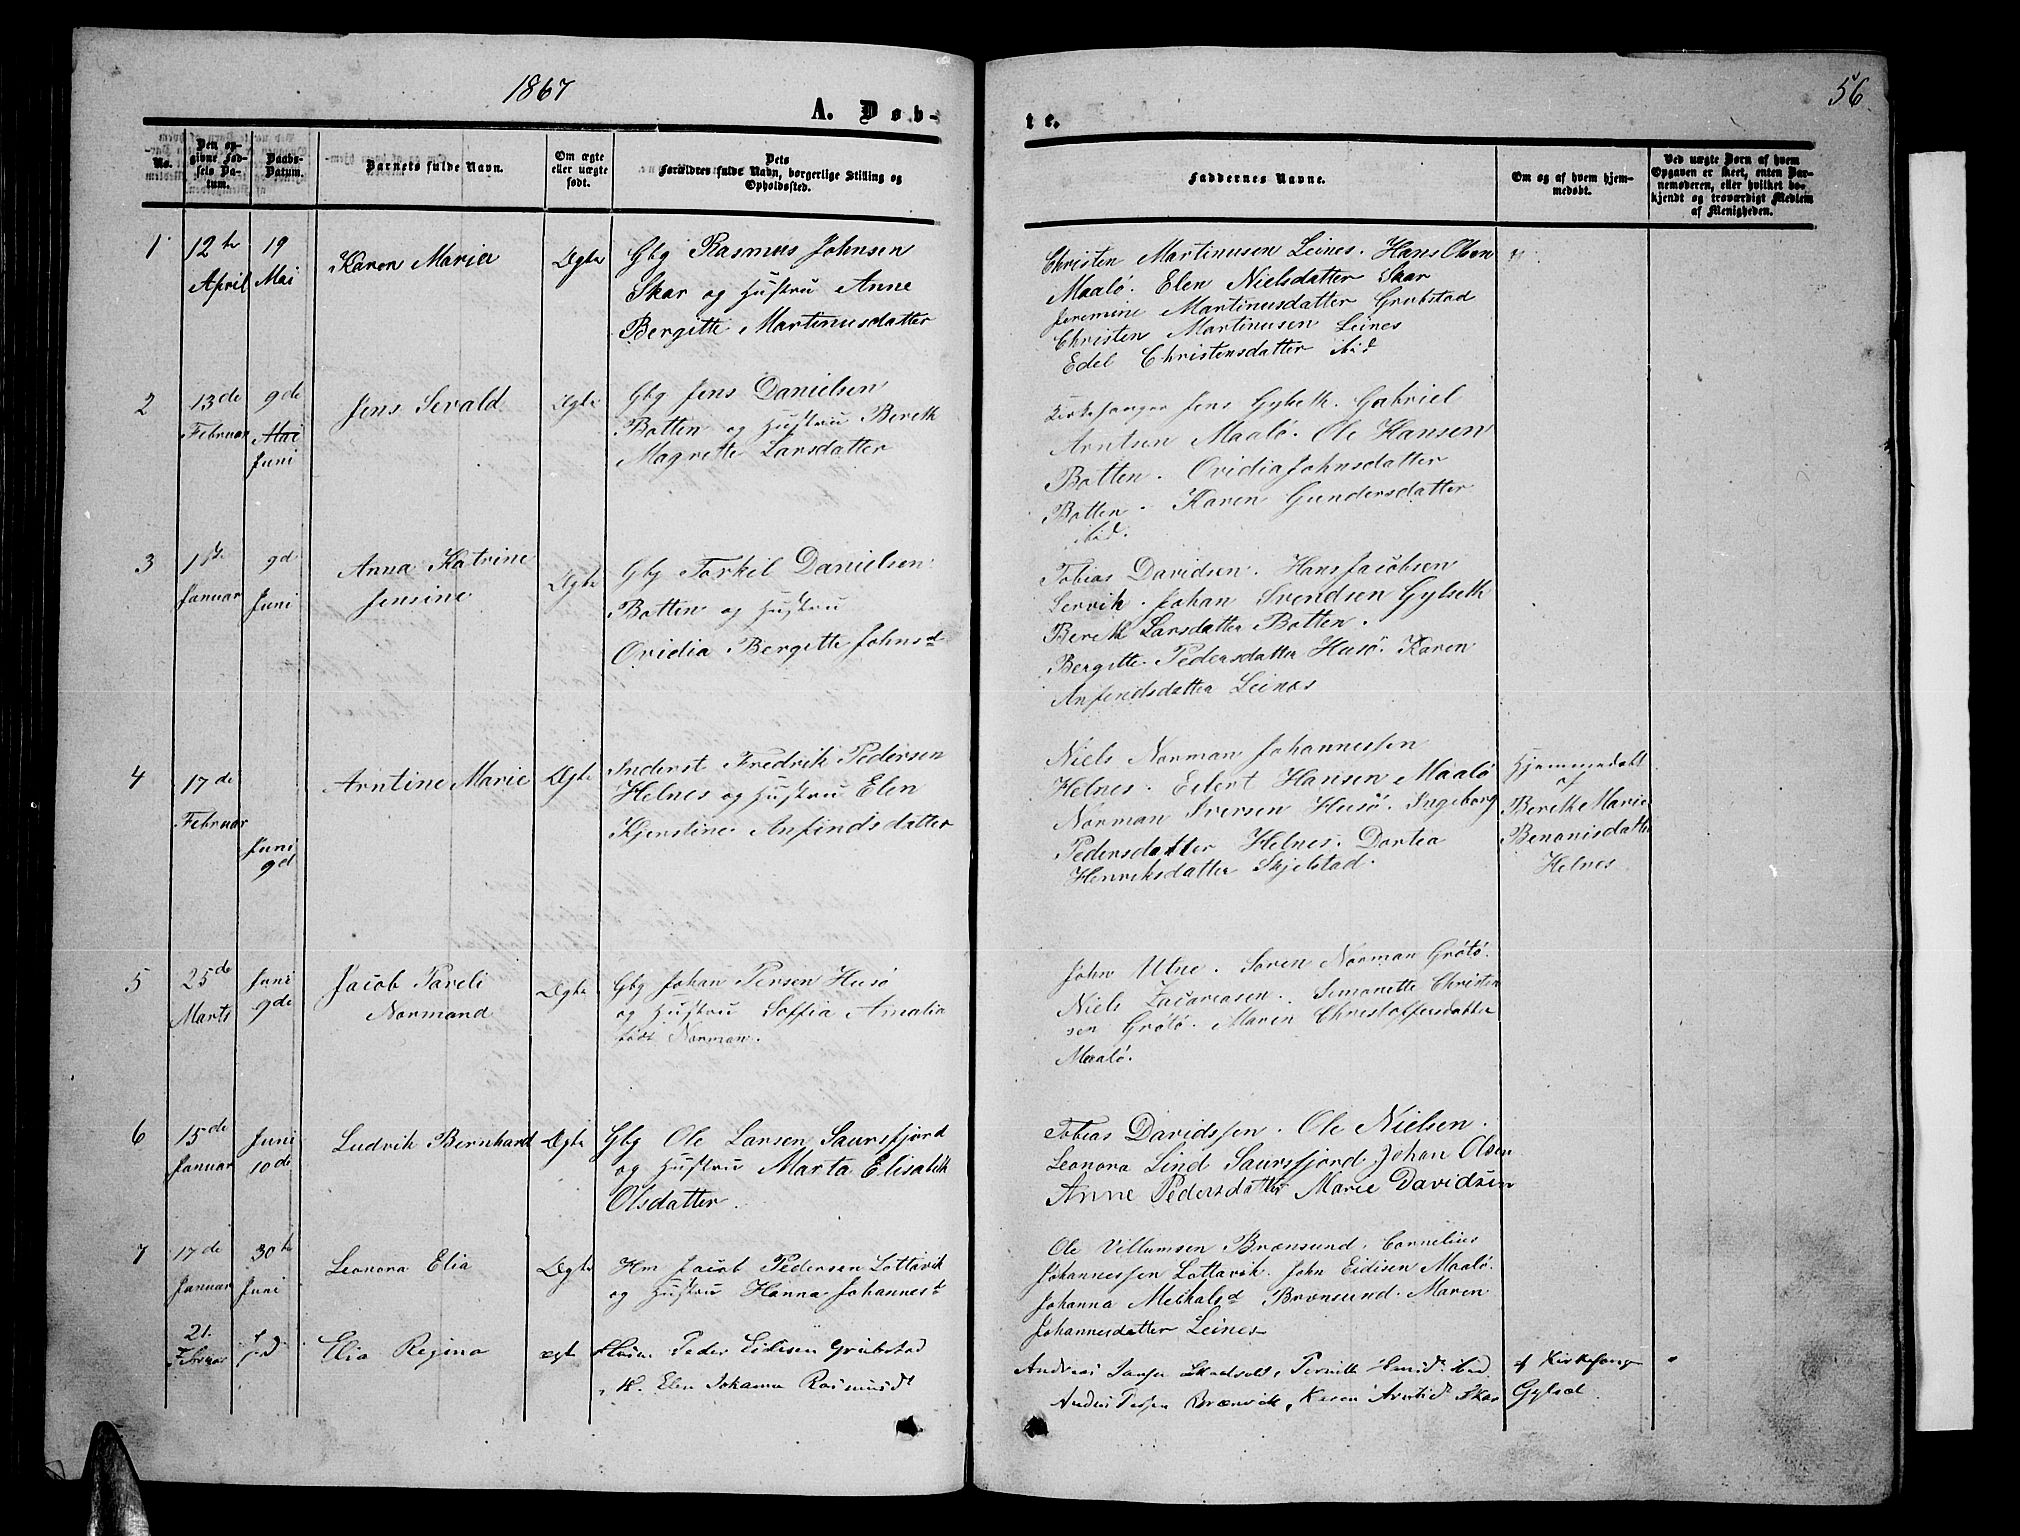 1867
56
A. Døb-
te.
No.
Den op-
givne Fød-
sels Da-
tum.
Daabs-
Datum.
Barnets fulde Navn.
Om ægte
eller uægte
født.
Dets
Forældres fulde Navn, borgerlige Stilling og
Opholdssted.
Faddernes Navne.
Om og af hvem hjem-
medøbt.
Ved uægte Børn af hvem
Opgaven er skeet, enten Bar-
nemoderen, eller hvilket be-
kjendt og troværdigt Medlem
af Menigheden.
1
12te
April
19
Mai
Karen Maria
Ægte
Gbg Rasmus Johnsen
Skar og Hustru Anne
Bergitte Martinusdatter
Christen Martinusen Leines. Hans Olsen
Maalö. Elen Nielsdatter Skar
Jeremine Martinusdatter Grubstad
Christen Martinusen Leines
Edel Christensdatter ibid
2
13de
Februar
9de
Mai
Juni
Jens Sevald
Ægte
Gbg Jens Danielsen
Botten og Hustru Bereth
Magrette Larsdatter
Kirkesanger Jens Gylseth. Gabriel
Arntsen Maalö. Ole Hansen
Botten. Ovidia Johnsdatter
Botten. Karen Gundersdatter
ibid.
3
1ste
Januar
9d
Juni
Anna Katrine
Jensine
Ægte
Gbg Torkil Danielsen
Botten og Hustru
Ovidia Bergitte Johnsd
Tobias Davidsen. Hans Jacobsen
Lervik. Johan Svendsen Gylseth
Bereth Larsdatter Botten.
Bergitte Pedersdatter Husö. Karen
Anfindsdatter Leines
4
17de
Februar
Juni
9d
Arntine Marie
Ægte
Inderst Fredrik Pedersen
Helnes og Hustru Elen
Kjerstine Anfindsdatter
Niels Norman Johannessen
Helnes. Eilert Hansen Maalö
Norman Iversen Husö. Ingeborg
Pedersdatter Helnes. Dortea
Henriksdatter Skjelstad.
Hjemmedøbt
af
Bereth Marie
Benonisdatter
Helnes
5
25de
Marts
Juni
9de
Jacob Pareli
Normand
Ægte
Gbg Johan Persen Husö
og Hustru Soffia Amalia
født Norman.
John Utne. Sören Norman Grötö.
Niels Zacariasen. Simonette Christen
sen Grötö. Maren Christoffersdatter
Maalö.
6
15de
Januar
Juni
10de
Ludvik Bernhard
Ægte
Gbg Ole Larsen Saursfjord
og Hustru Marta Elisabeth
Olsdatter.
Tobias Davidssen. Ole Nielsen.
Leonora Lind Saursfjord Johan Olsen
Anne Pedersdatter Marie Davidsen
7
17de
Januar
30te
Juni
Leonora Elia
Ægte
Hm Jacob Pedersen Lottavik
og Hustru Hanna Johannesd
Ole Villumsen Brænsund. Cornelius
Johannessen Lottavik. John Eidisen Maalö.
Johanna Mechalsd Brænsund. Maren
Johannesdatter Leines
21.
Februar
Elia Regina
ægte
Peder Eidisen Grubstad
H. Elen Johanna Rasmusd
Andreas
ibid
af Kirkesang
Skar